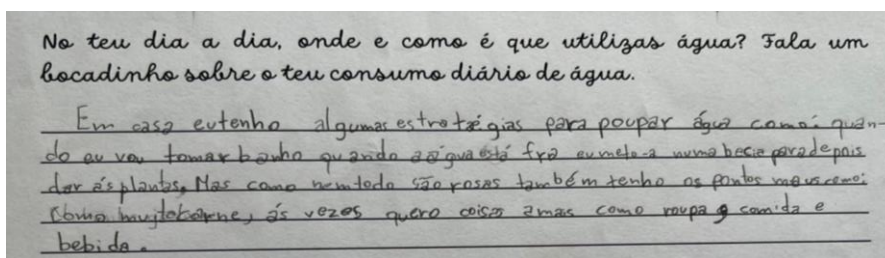 No teu dia a dia, onde e como é que utilizas água? Fala um
bocadinho sobre o teu consumo diário de água.
Em casa eu tenho algumas estratégias para poupar água como: quan-
do eu vou tomar banho quando a água está fria eu meto-a numa bacia para depois
dar ás plantas. Mas como nem todo são rosas também tenho os pontos maus como:
Como muita carne, ás vezes quero coisas a mais como roupa, comida e
bebida.